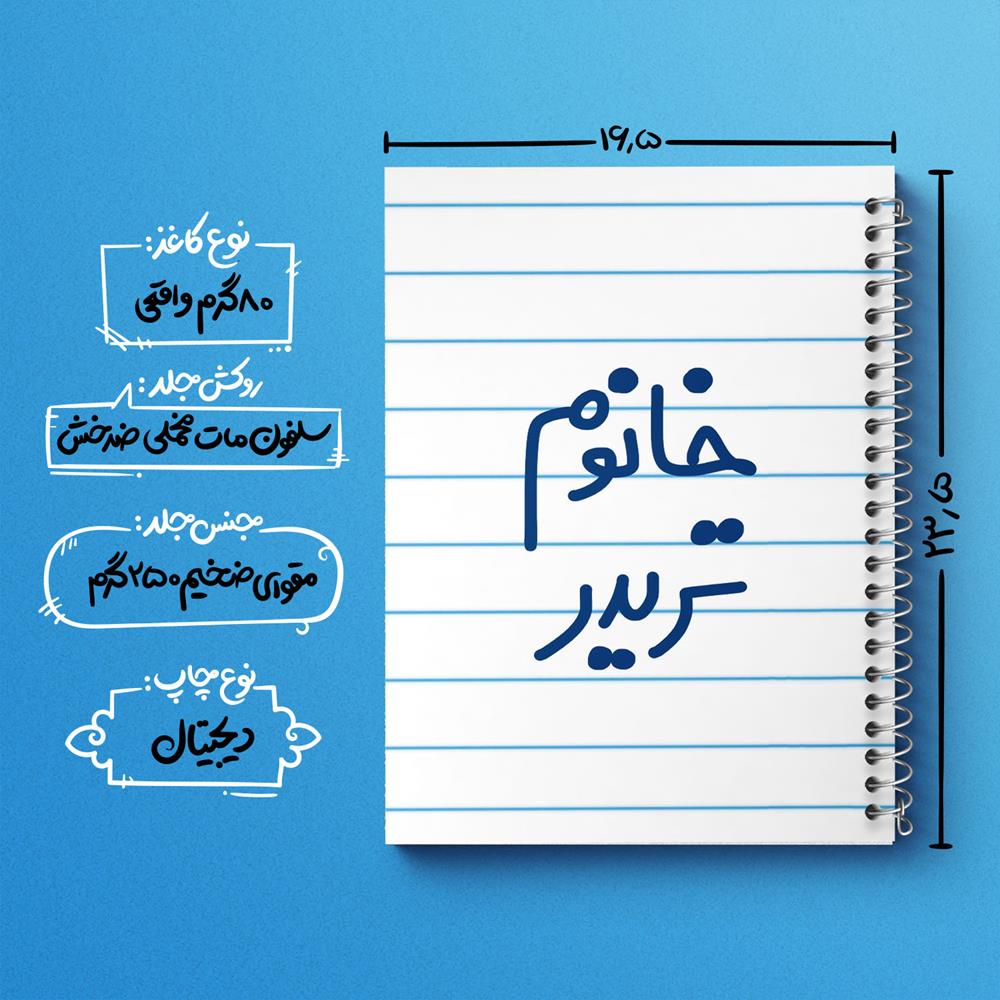 ۱۶,۵
نوع کاغذ:
۸۰ گرم واقعی
روکش جلد:
سلفون مات مخملی ضدخش
جنس جلد:
مقوای ضخیم ۲۵۰ گرم
نوع چاپ:
دیجیتال
خانوم
تریدر
۲۳,۵